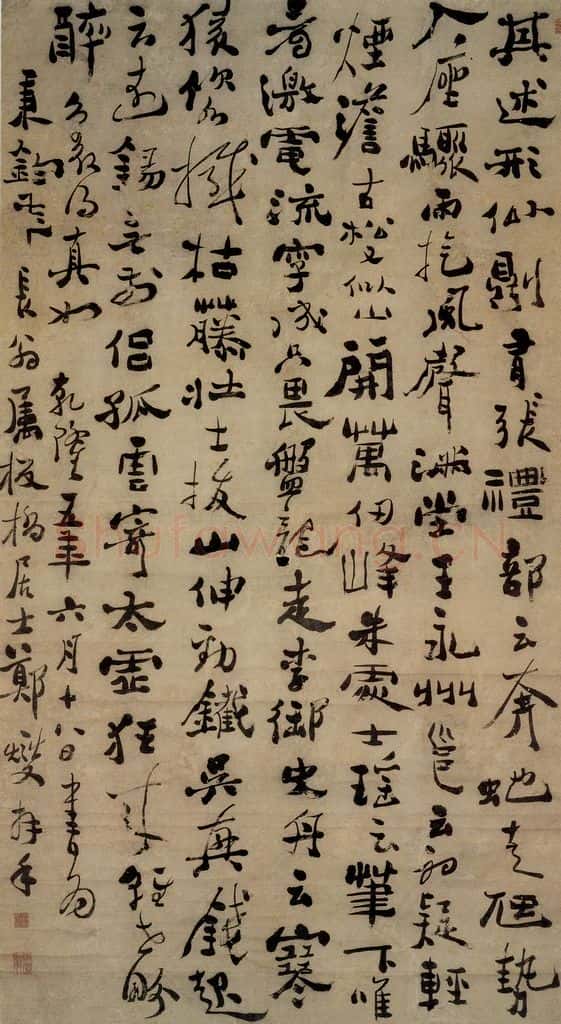 其述形似則有張禮部云奔蛇走虺勢
入座驟雨旋風聲滿堂王永州邕云初疑輕
煙澹古松又似山開萬仞峰朱處士瑤云筆下唯
看激電流字成只畏盤龍走李御史舟云寒
猿飲水撼枯藤壯士拔山伸勁鐵吳興錢起
云遠錫無前侶孤雲寄太虛狂來輕世界
醉裏得真如 乾隆五年六月十八日書為
秉鈞 長翁屬板橋居士鄭燮
shufawang.CN